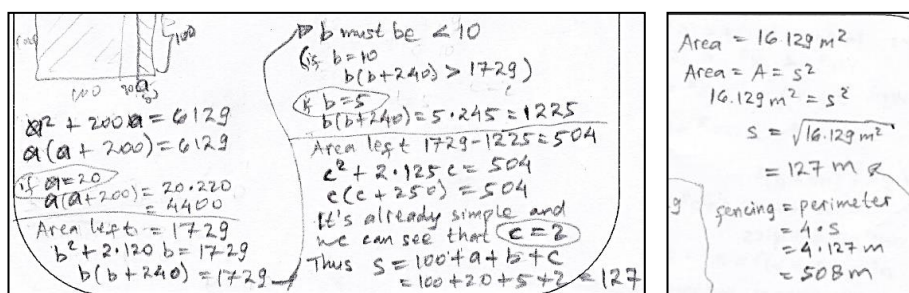 100
100
a² + 200a = 6129
a(a + 200) = 6129
if a = 20
a(a+200) = 20.220
= 4400
Area left = 1729
b² + 2.120 b = 1729
b(b+240) = 1729
b must be < 10
(if b=10
b(b+240) > 1729)
if b=5
b(b+240) = 5.245 = 1225
Area left 1729-1225=504
c² + 2.125 c = 504
c(c+250) = 504
It's already simple and
we can see that c=2
Thus S=100+a+b+c
=100+20+5+2 = 127
Area = 16.129 m²
Area = A = s²
16.129 m² = s²
s = √16.129 m²
= 127 m
g
fencing = perimeter
= 4.s
= 4.127 m
= 508 m